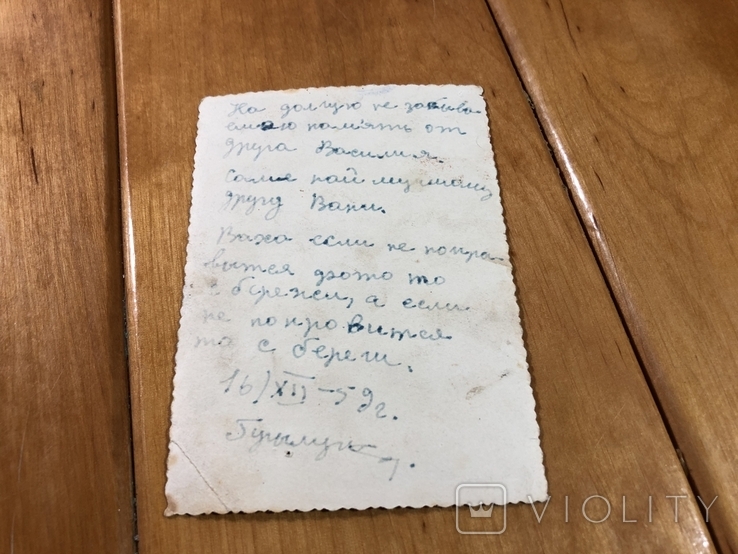 На долгую не забыва
емою память от
друга Василия.
Саме най лучшому
другу Вани.
Ваха если не понра
вытся фото то
с бережи, а если
не понровится
то с береги.
16/XII-59г.
VIOLITY